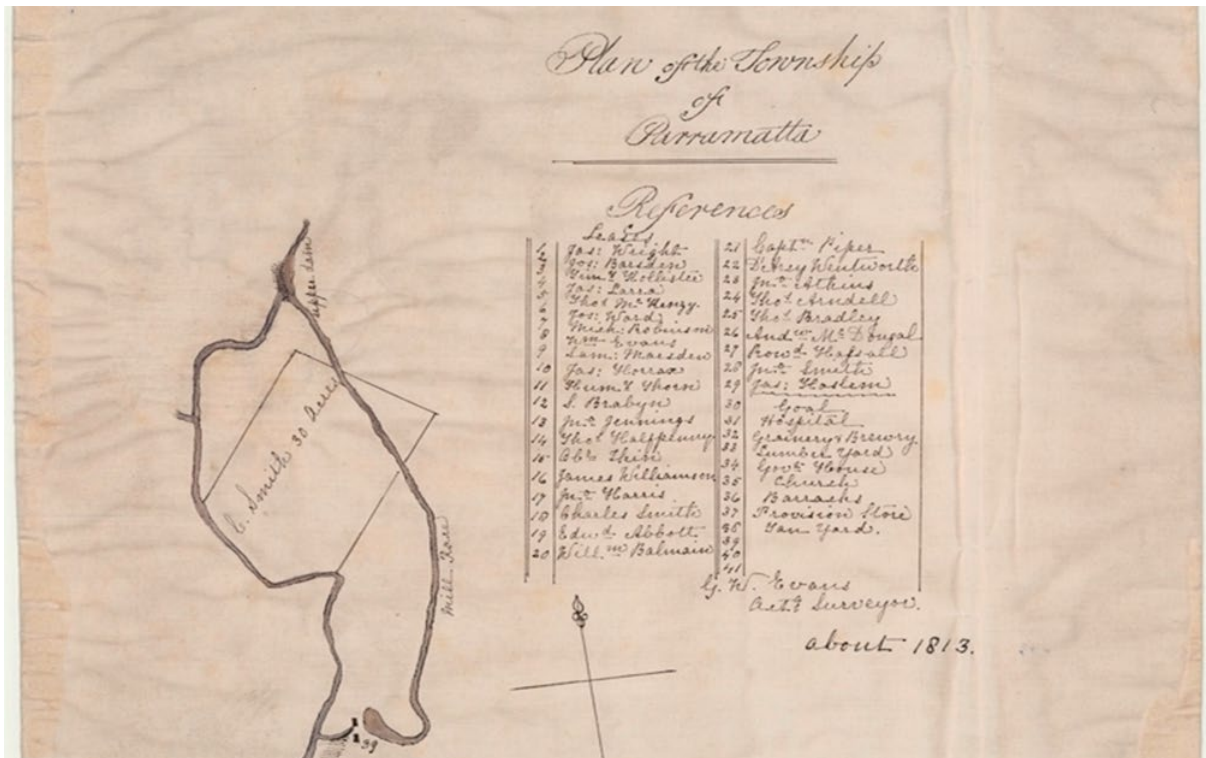 Plan of the Township
of
Parramatta
References
Leases
1 Jas: Wright
2 Jos: Barsden
3 Thos. Hollister
4 Jas: Larra
5 Thos. McKenzy
6 Jos: Ward
7 Mich: Robinson
8 Wm. Evans
9 Sam: Marsden
10 Jas: Horrax
11 Hum. Thorn
12 S. Brabyn
13 Jno. Jennings
14 Thos. Halfpenny
15 Abm.
16 James Williamson
17 Jno. Harris
18 Charles Smith
19 Edwd. Abbott
20 Will.m Balmain
21 Captn. Piper
22 D'Arcy Wentworth
23 Jno. Atkins
24 Thos. Arndell
25 Thos. Bradley
26 Andw. McDougal
27 Rowd. Hassall
28 Jno. Smith
29 Jas: Haslem
30 Goal
31 Hospital
32 Grainery & Brewry
33 Lumber Yard
34 Govt. House
35 Church
36 Barracks
37 Provision Store
38 Tan Yard.
39
40
41
G. W. Evans
Actg. Surveyor.
about 1813.
upper dam
C. Smith 30 Acres
Mill Race
39